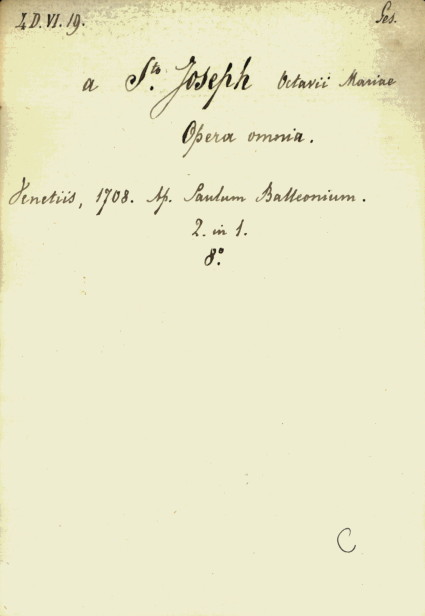 4 D. VI. 19. Ges.
a Sto. Joseph Octavii Mariae
Opera omnia.
Venetiis, 1708. Ap. Paulum Balleonium.
2. in 1.
8°.
C